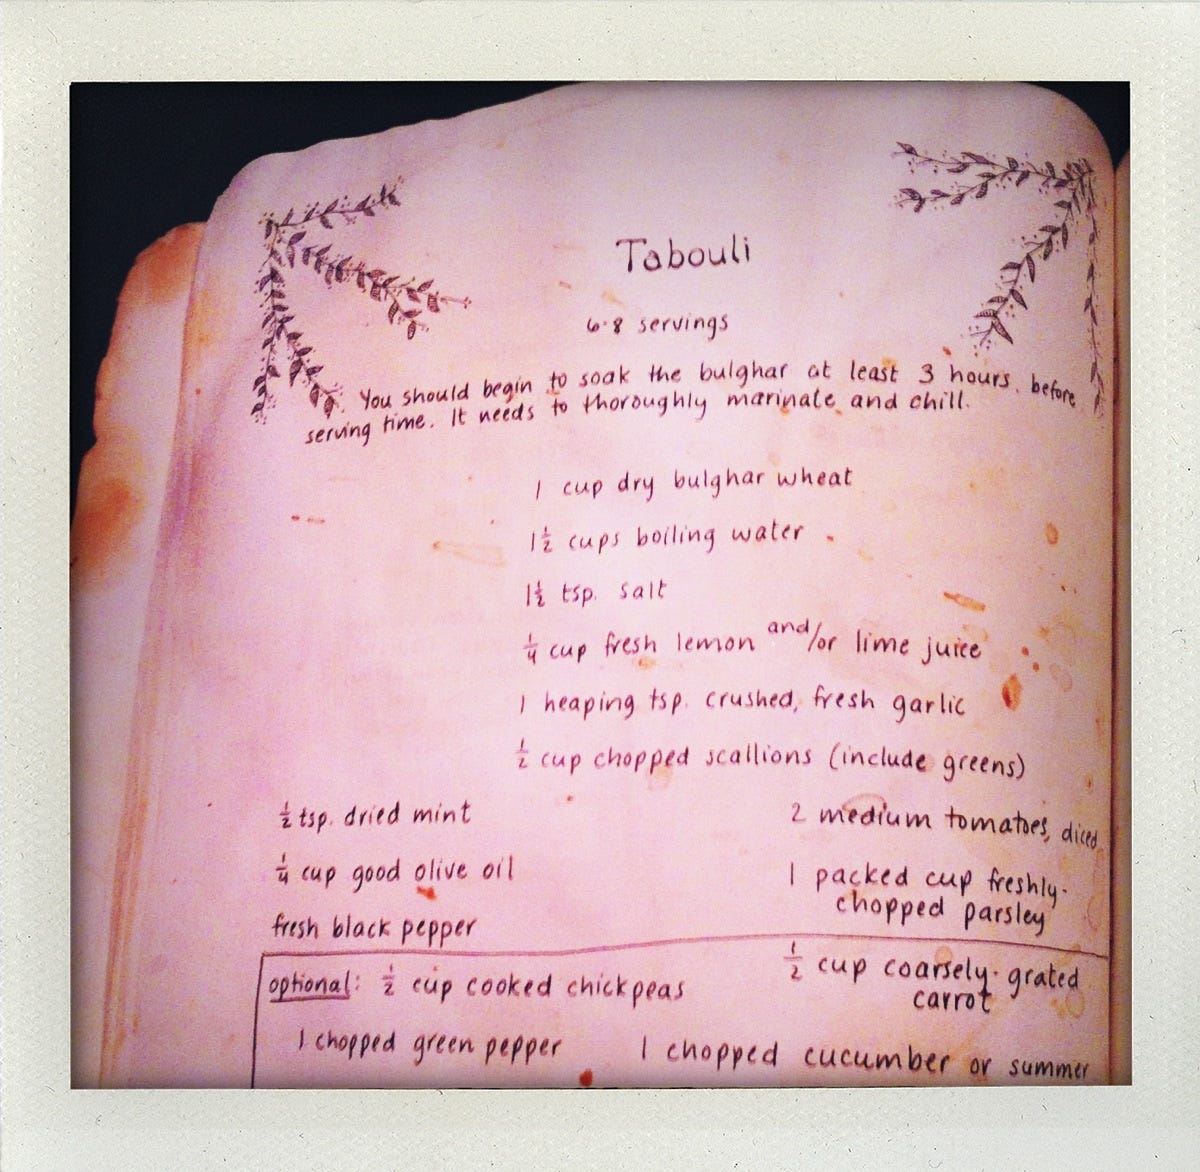 Tabouli
6-8 servings
You should begin to soak the bulghar at least 3 hours before
serving time. It needs to thoroughly marinate and chill.
1 cup dry bulghar wheat
1½ cups boiling water
1½ tsp. salt
¼ cup fresh lemon and/or lime juice
1 heaping tsp. crushed, fresh garlic
½ cup chopped scallions (include greens)
½ tsp. dried mint
¼ cup good olive oil
fresh black pepper
2 medium tomatoes, diced
1 packed cup freshly-
chopped parsley
optional: ½ cup cooked chickpeas
½ cup coarsely-grated
carrot
1 chopped green pepper
1 chopped cucumber or summer